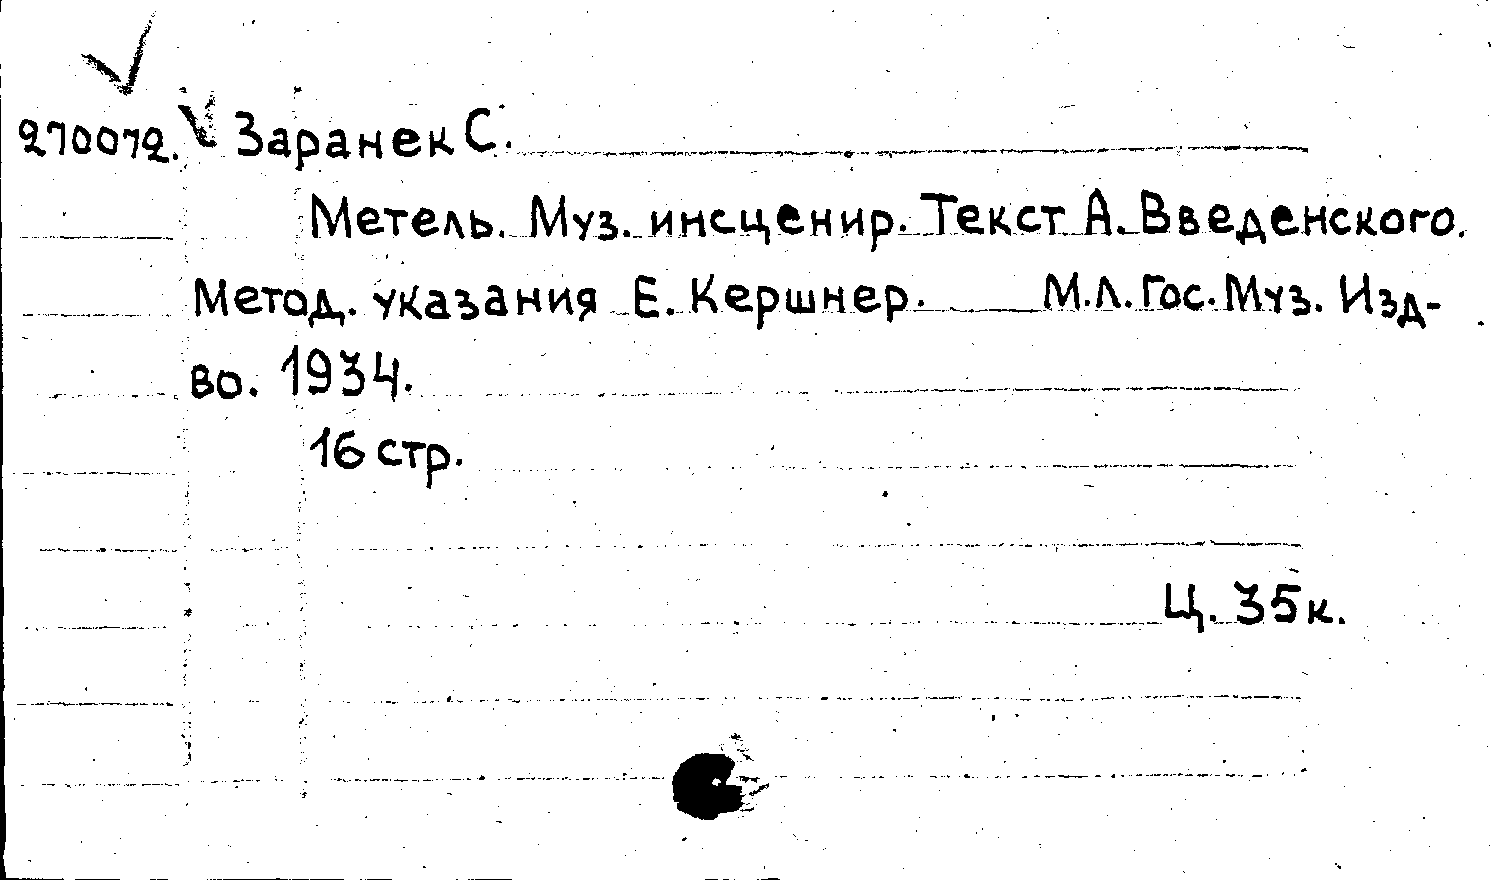 270072. Заранек С.
Метель. Муз. инсценир. Текст А. Введенского.
Метод. указания Е. Кершнер. М.Л. Гос. Муз. Изд-
во. 1934.
16 стр.
Ц. 35 к.